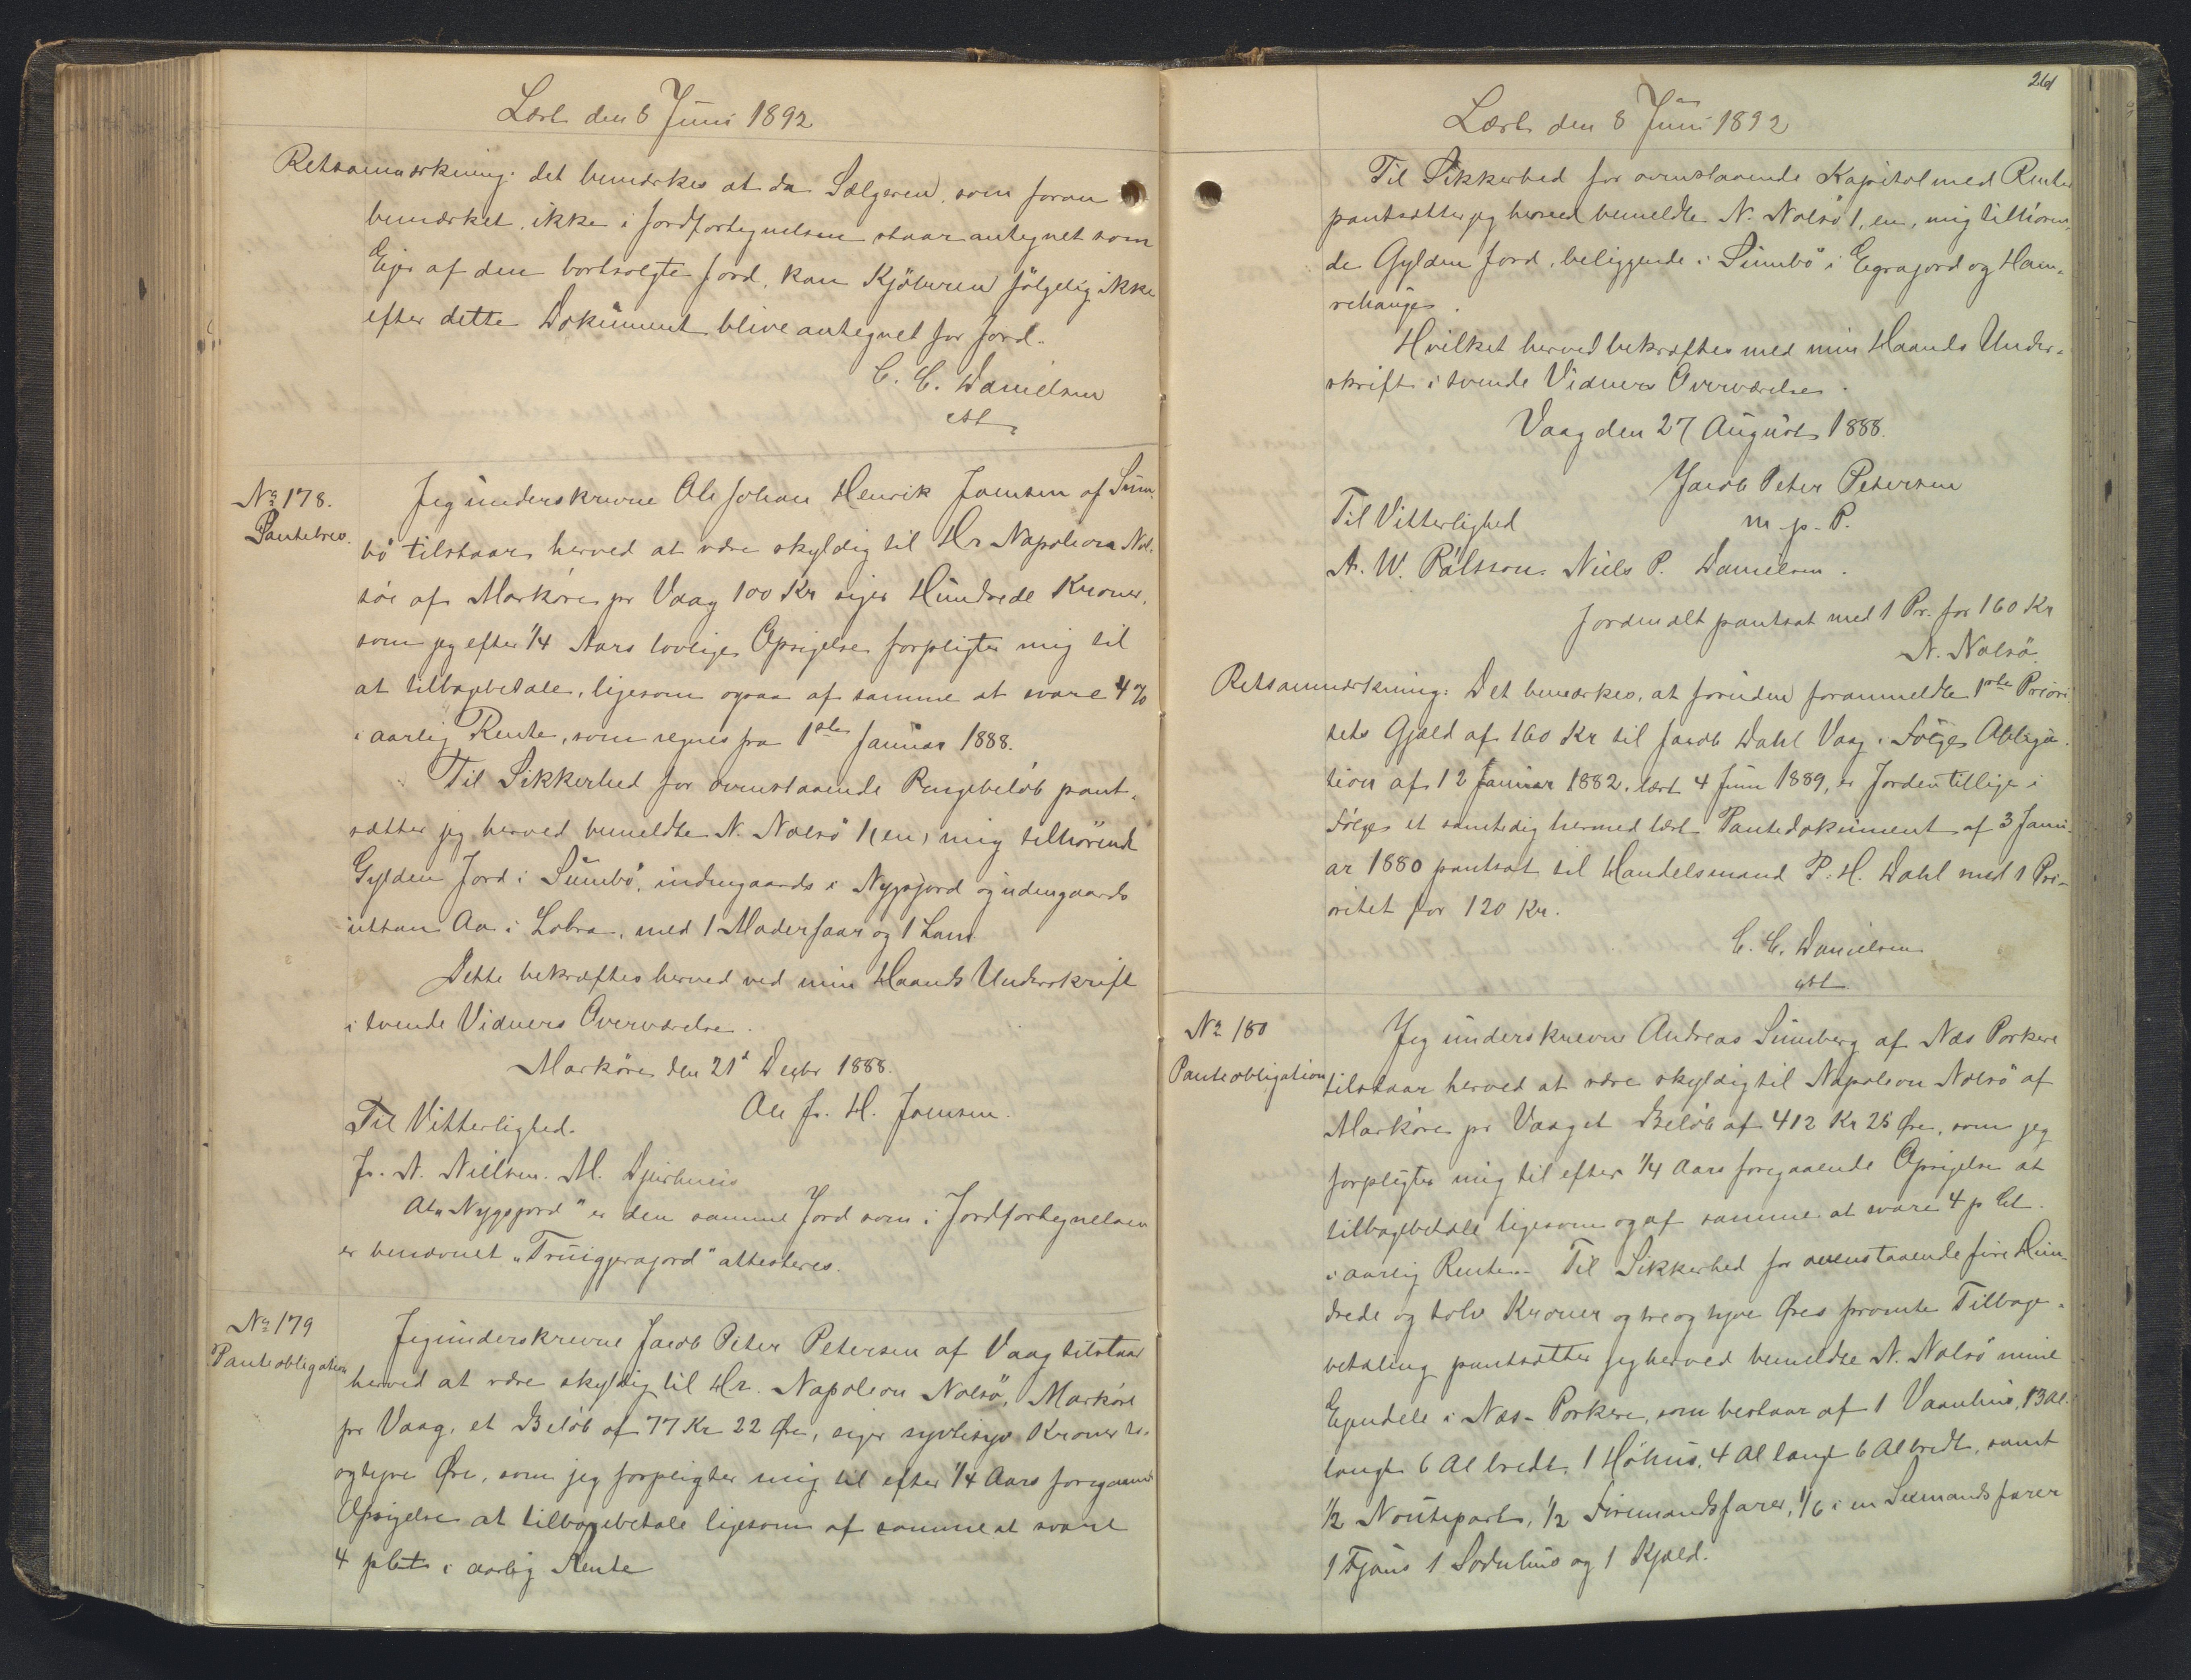 Læst den 8 Juni 1892
Retsanmærkning: det bemærkes at da Sælgeren, som foran
bemærket, ikke i Jordfortegnelsen staar antegnet som
Ejer af den bortsolgte Jord, kan Kjøberen følgelig ikke
efter dette Dokument blive antegnet for Jord.
C. C. Danielsen
cst
No 178.
Pantebrev.
Jeg underskrevne Ole Johan Henrik Joensen af Sum-
bö tilstaar herved at være skyldig til Hr Napoleon Nol-
söe af Marköre pr Vaag 100 Kr siger Hundrede Kroner,
som jeg efter 1/4 Aars lovlige Opsigelse forpligter mig til
at tilbagebetale, ligesom ogsaa af samme at svare 4%
i aarlig Rente, som regnes fra 1ste Januar 1888.
Til Sikkerhed for ovenstaaende Pengebelöb pant-
sætter jeg herved bemeldte N. Nolsö 1 (en) mig tilhørende
Gylden Jord i Sumbö, indengaards i Nygsjord og udengaards
uttan Aa i Lobra, med 1 Moderfaar og 1 Lam.
Dette bekræftes herved ved min Haands Underskrift
i tvende Vidners Overværelse.
Marköre den 21d Decbr 1888.
Ole Jo. H. Joensen.
Til Vitterlighed.
Jo. N. Nielsen. M. Djurhuus
At „Nygsjord" er den samme Jord som i Jordfortegnelsen
er benævnet „Truiggerajord" attesteres.
No 179
Panteobligation
Jeg underskrevne Jacob Peter Petersen af Vaag tilstaar
herved at være skyldig til Hr. Napoleon Nolsö, Marköre
pr Vaag, et Belöb af 77 Kr 22 Øre, siger syvtisyv Kroner to-
ogtyve Øre, som jeg forpligter mig til efter 1/4 Aars foregaaende
Opsigelse at tilbagebetale ligesom af samme at svare
4 pCt i aarlig Rente
261
Læst den 8 Juni 1892
Til Sikkerhed for ovenstaaende Kapital med Renter
pantsætter jeg herved bemeldte N. Nolsö 1, en, mig tilhören-
de Gylden Jord, beliggende i Sumbö i Egrajord og Ham-
rehauge.
Hvilket herved bekræftes med min Haands Under-
skrift i tvende Vidners Overværelse.
Vaag den 27 August 1888.
Jacob Peter Petersen
m. p. P.
Til Vitterlighed
A. W. Pålsson. Niels P. Danielsen.
Jordmålt pantsat med 1 Pr. for 160 Kr
N. Nolsö.
Retsanmærkning: Det bemærkes, at foruden foranmeldte 1ste Priori-
tets Gjæld af 160 Kr til Jacob Dahl Vaag i Følge Obliga-
tion af 12 Januar 1882, læst 4 Juni 1889, er Jorden tillige i
Følge et samtidig hermed læst Pantedokument af 3 Janu-
ar 1880 pantsat til Handelsmand P. H. Dahl med 1 Pri-
oritet for 120 Kr.
C. C. Danielsen
cst
No 180
Panteobligation
Jeg underskrevne Andreas Sumberg af Næs Porkere
tilstaar herved at være skyldig til Napoleon Nolsö af
Marköre pr Vaag et Belöb af 412 Kr 25 Øre, som jeg
forpligter mig til efter 1/4 Aars foregaaende Opsigelse at
tilbagebetale ligesom og af samme at svare 4 p Ct.
i aarlig Rente. Til Sikkerhed for ovenstaaende fire Hun-
drede og tolv Kroner og tre og tyve Øres promte Tilbage-
betaling pantsætter jeg herved bemeldte N. Nolsö mine
Ejendele i Næs-Porkere, som bestaar af 1 Vaanhus, 13 Al.
langt 6 Al bredt, 1 Höhus, 4 Al langt 6 Al bredt, samt
1/2 Noutepart, 1/2 Firemandsfarer, 1/6 i en Sexmandsfarer
1 Fjøus 1 Sodnhus og 1 Kjæld.